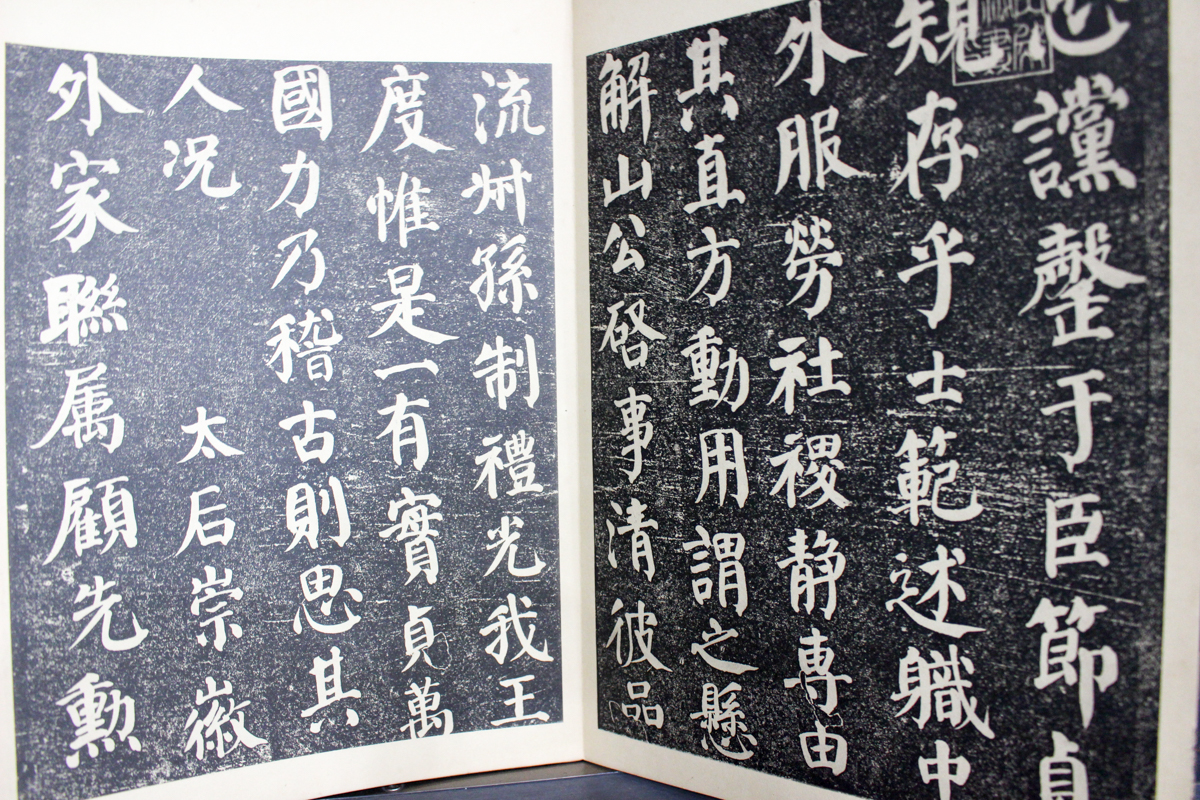 忠讜罄于臣節貞
規存乎士範述職中
外服勞社稷静專由
其直方動用謂之懸
解山公啓事清彼品
流州孫制禮光我王
度惟是一有實貞萬
國力乃稽古則思其
人况 太后崇徽
外家聯属顧先勳